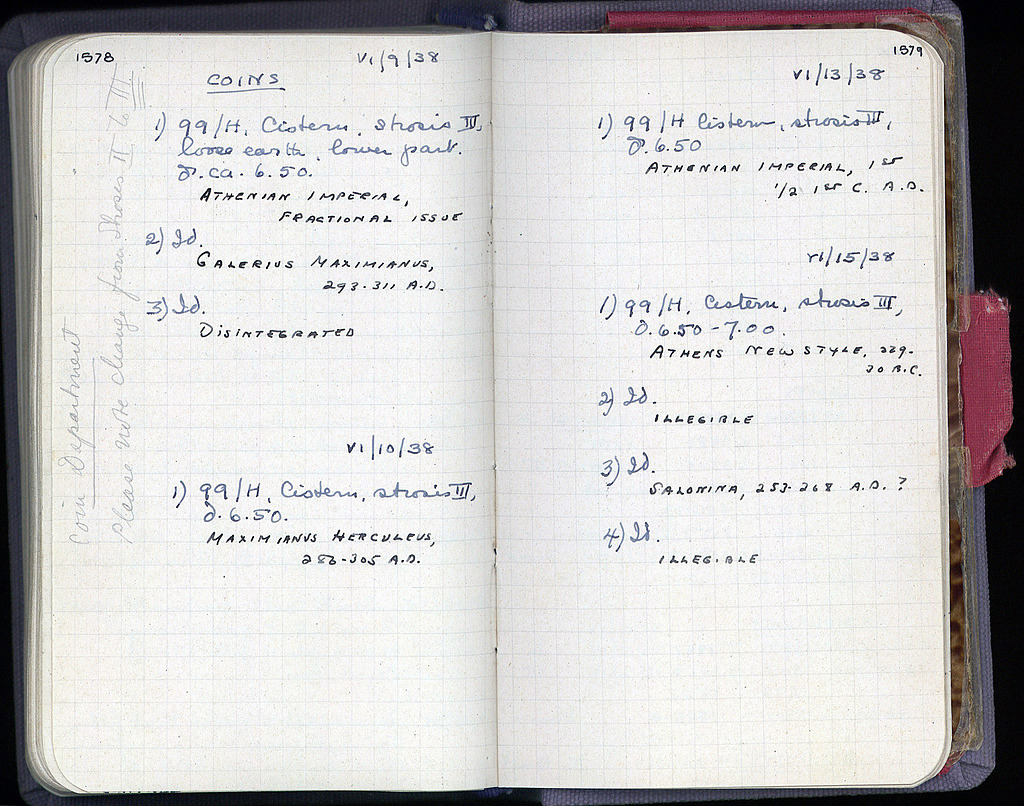 1578
VI/9/38
COINS
1) 99/H, Cistern, strosis III,
loose earth, lower part.
δ. ca. 6.50.
ATHENIAN IMPERIAL,
FRACTIONAL ISSUE
2) Id.
GALERIUS MAXIMIANUS,
293-311 A.D.
3) Id.
DISINTEGRATED
VI/10/38
1) 99/H, Cistern, strosis III,
δ. 6.50.
MAXIMIANUS HERCULEUS,
286-305 A.D.
Coin Department
Please note change from Stroses II to III
1579
VI/13/38
1) 99/H Cistern, strosis III,
δ. 6.50
ATHENIAN IMPERIAL, 1ST
1/2 1ST C. A.D.
VI/15/38
1) 99/H, Cistern, strosis III,
δ. 6.50-7.00.
ATHENS NEW STYLE, 229-
30 B.C.
2) Id.
ILLEGIBLE
3) Id.
SALONINA, 253-268 A.D. ?
4) Id.
ILLEGIBLE